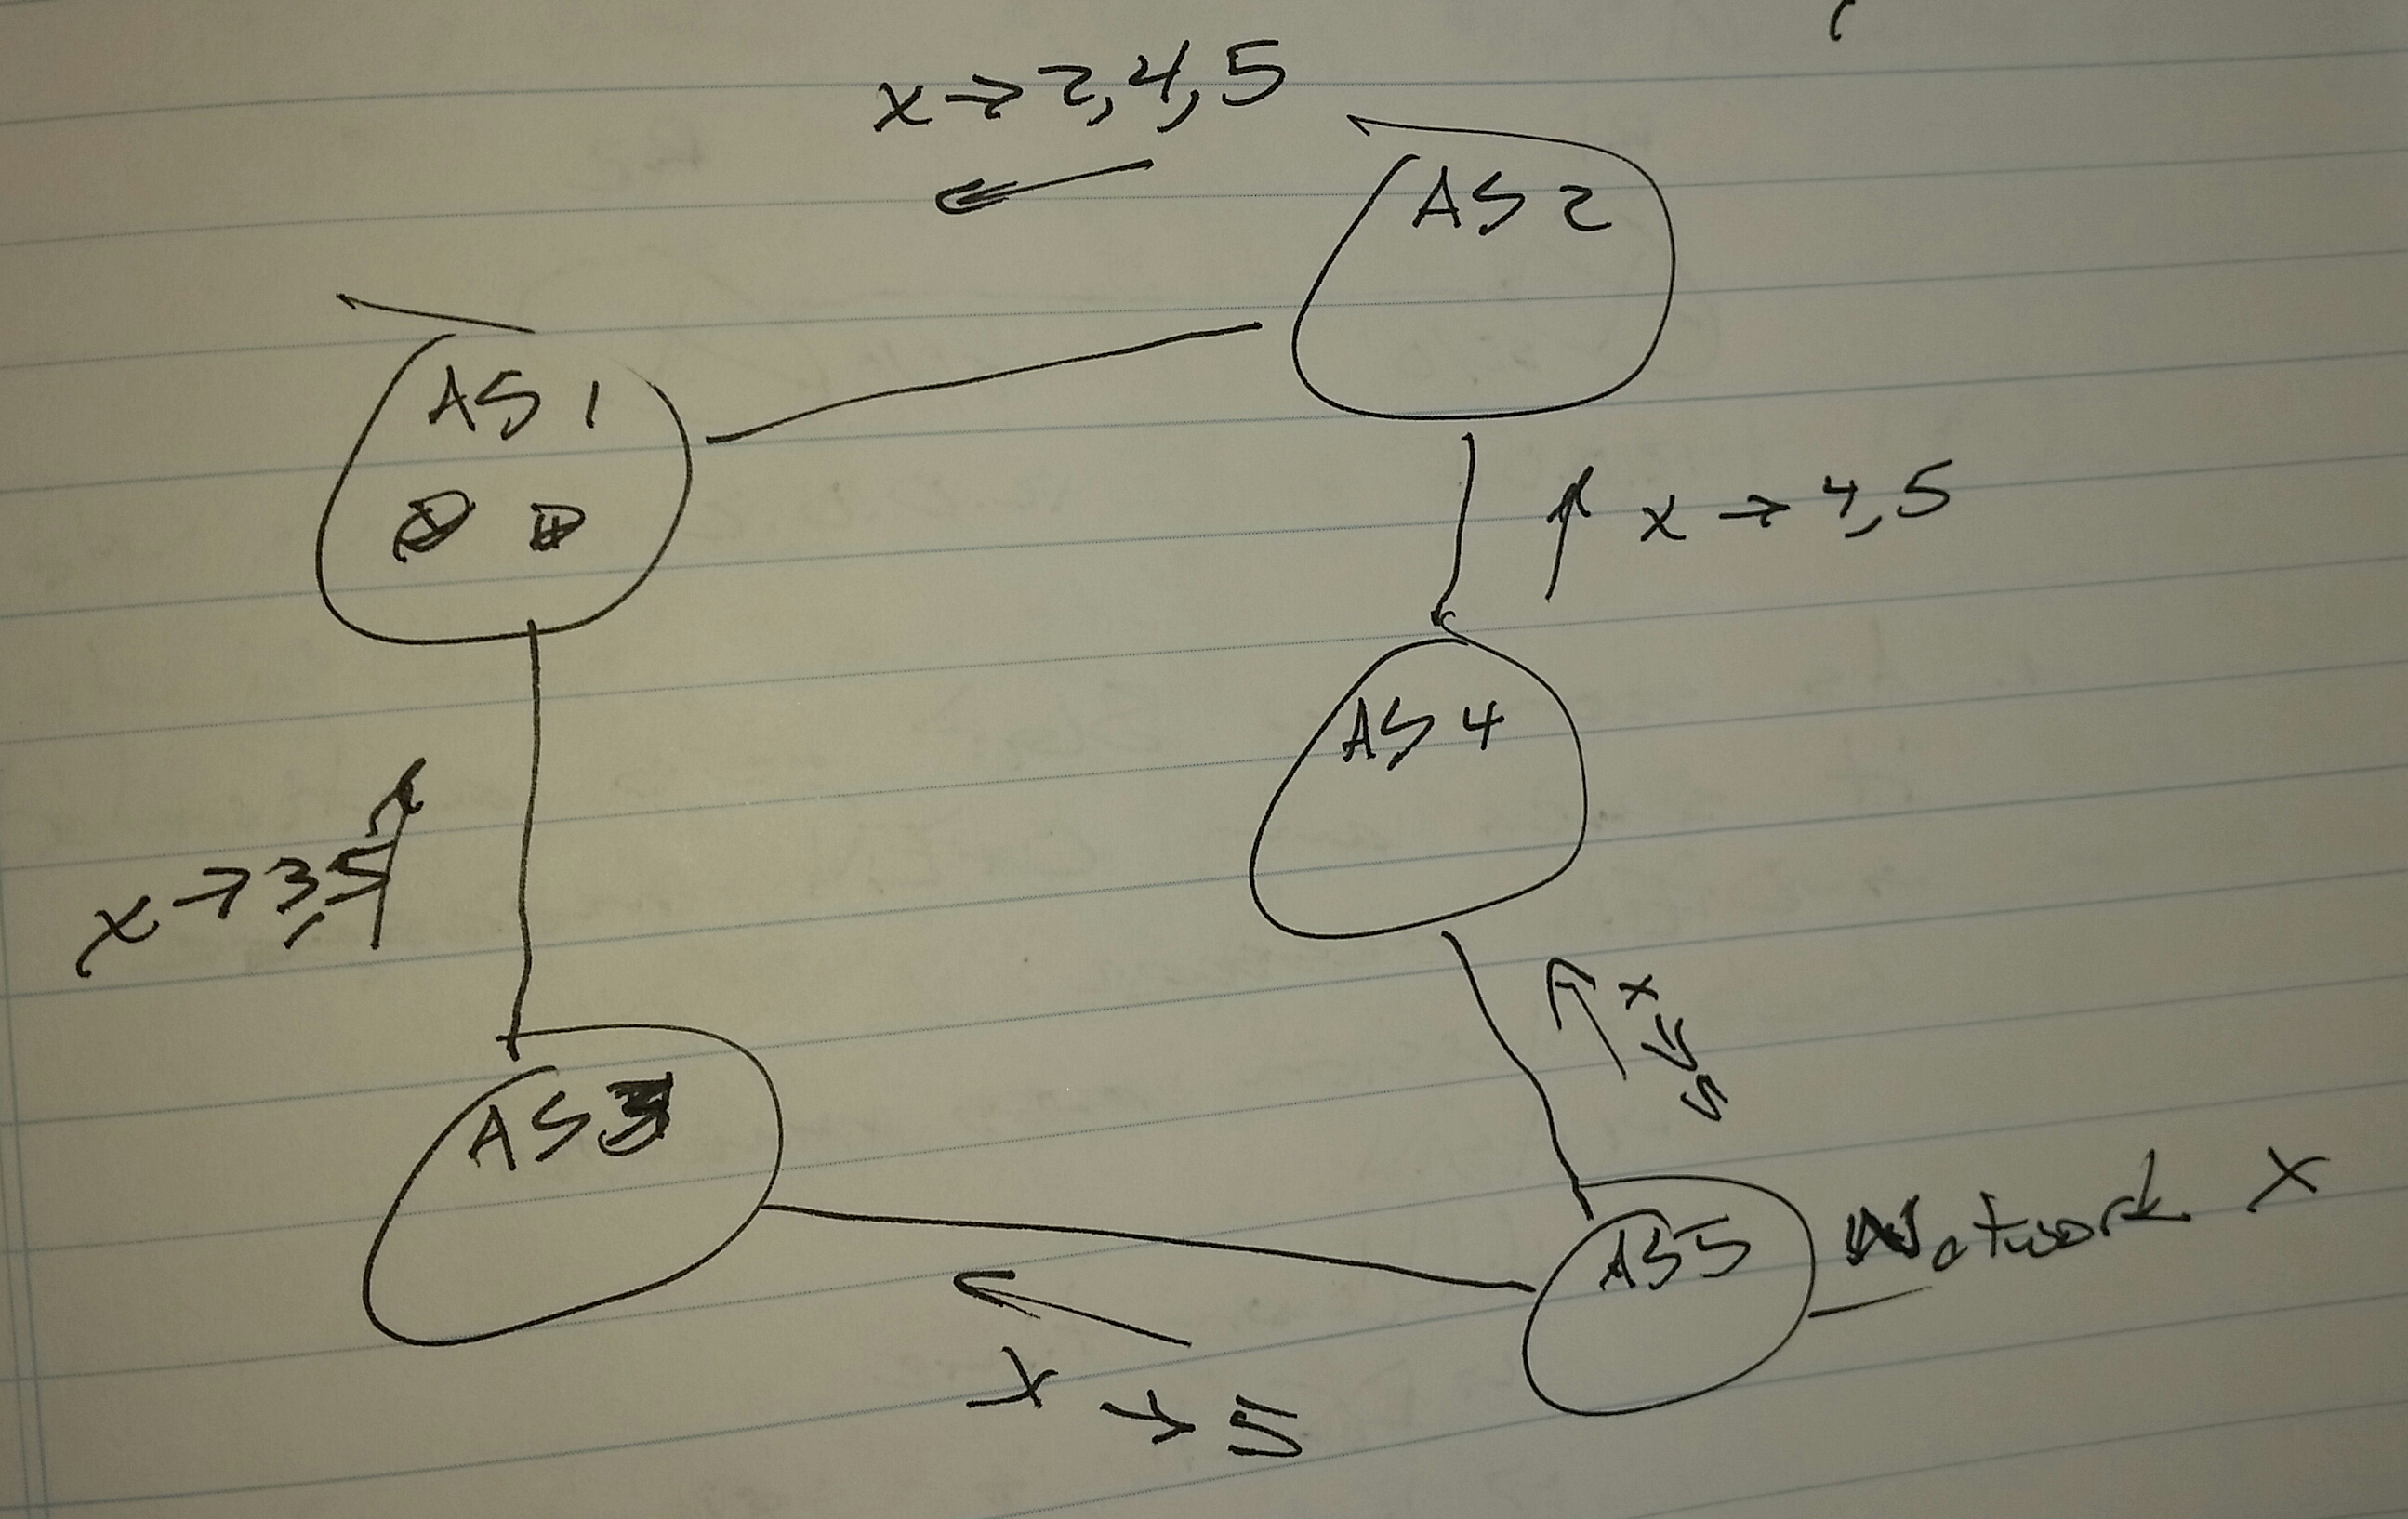 x → 2,4,5
AS 2
AS 1
x → 4,5
AS 4
x → 3,5
x → 5
AS3
AS5
Network X
x → 5